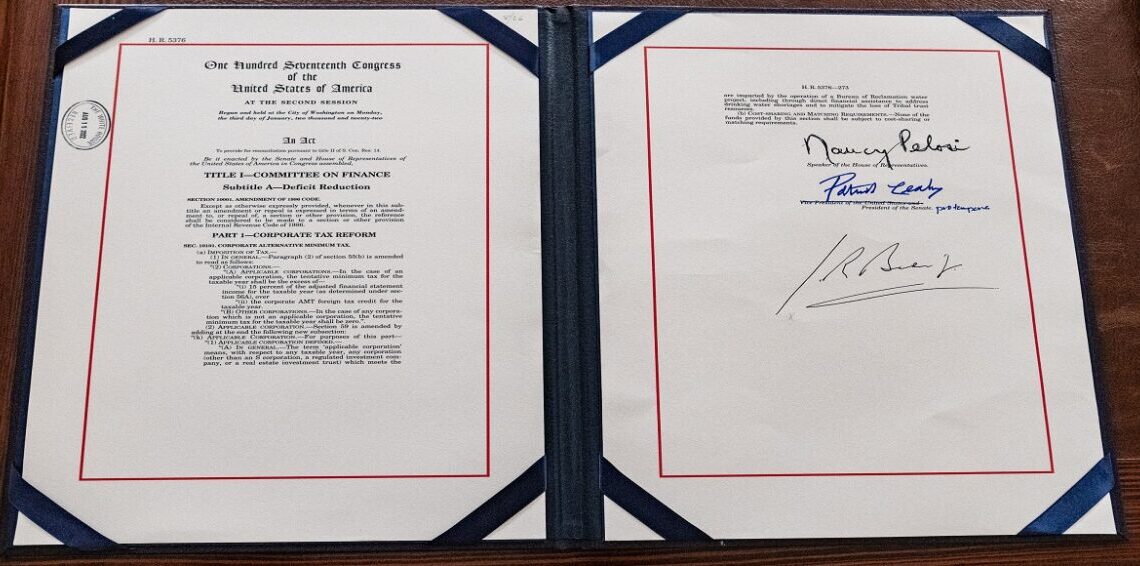 H. R. 5376
One Hundred Seventeenth Congress
of the
United States of America
AT THE SECOND SESSION
Begun and held at the City of Washington on Monday,
the third day of January, two thousand and twenty-two
An Act
To provide for reconciliation pursuant to title II of S. Con. Res. 14.
Be it enacted by the Senate and House of Representatives of
the United States of America in Congress assembled,
TITLE I—COMMITTEE ON FINANCE
Subtitle A—Deficit Reduction
SECTION 10001. AMENDMENT OF 1986 CODE.
Except as otherwise expressly provided, whenever in this sub-
title an amendment or repeal is expressed in terms of an amend-
ment to, or repeal of, a section or other provision, the reference
shall be considered to be made to a section or other provision
of the Internal Revenue Code of 1986.
PART 1—CORPORATE TAX REFORM
SEC. 10101. CORPORATE ALTERNATIVE MINIMUM TAX.
(a) IMPOSITION OF TAX.—
(1) IN GENERAL.—Paragraph (2) of section 55(b) is amended
to read as follows:
"(2) CORPORATIONS.—
"(A) APPLICABLE CORPORATIONS.—In the case of an
applicable corporation, the tentative minimum tax for the
taxable year shall be the excess of—
"(i) 15 percent of the adjusted financial statement
income for the taxable year (as determined under sec-
tion 56A), over
"(ii) the corporate AMT foreign tax credit for the
taxable year.
"(B) OTHER CORPORATIONS.—In the case of any corpora-
tion which is not an applicable corporation, the tentative
minimum tax for the taxable year shall be zero.".
(2) APPLICABLE CORPORATION.—Section 59 is amended by
adding at the end the following new subsection:
"(k) APPLICABLE CORPORATION.—For purposes of this part—
"(1) APPLICABLE CORPORATION DEFINED.—
"(A) IN GENERAL.—The term 'applicable corporation'
means, with respect to any taxable year, any corporation
(other than an S corporation, a regulated investment com-
pany, or a real estate investment trust) which meets the
H. R. 5376—273
are impacted by the operation of a Bureau of Reclamation water
project, including through direct financial assistance to address
drinking water shortages and to mitigate the loss of Tribal trust
resources.
(b) COST-SHARING AND MATCHING REQUIREMENTS.—None of the
funds provided by this section shall be subject to cost-sharing or
matching requirements.
Nancy Pelosi
Speaker of the House of Representatives.
Patrick Leahy
Vice President of the United States and
President of the Senate. pro tempore